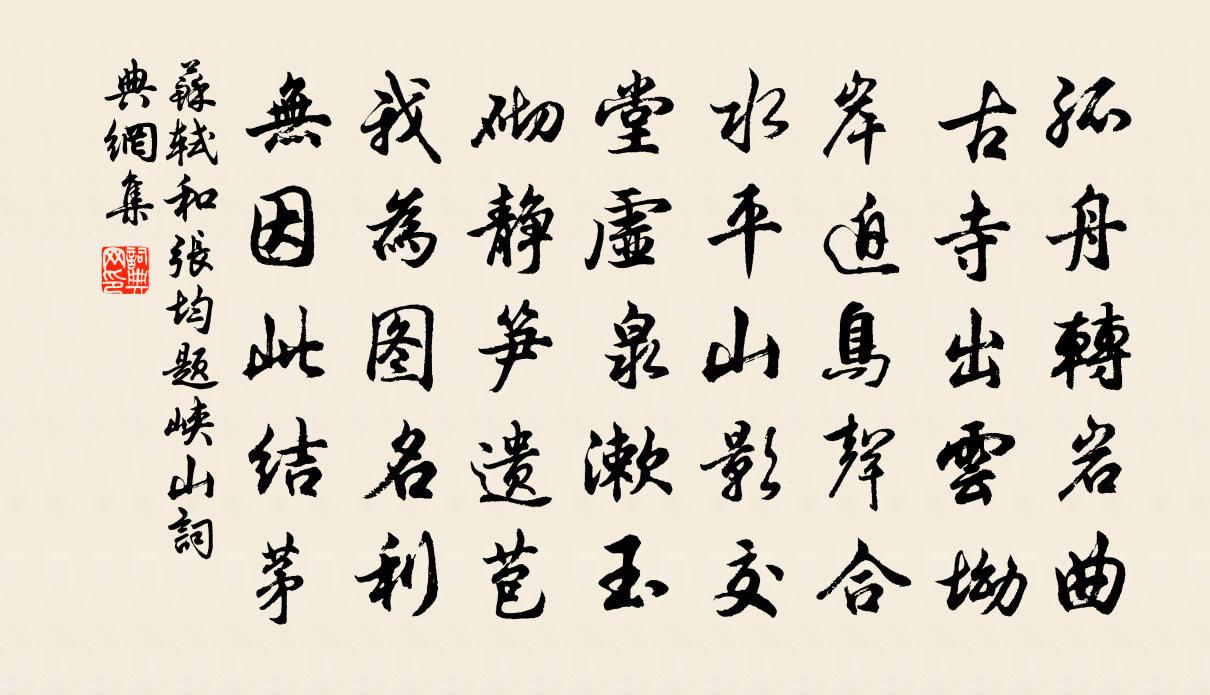 孤舟轉岩曲
古寺出雲坳
岸迫鳥聲合
水平山影交
堂虛泉漱玉
砌靜笋遗苞
我為图名利
無因此结茅
蘇軾和張均题峽山詞
典網集
詞典
网印